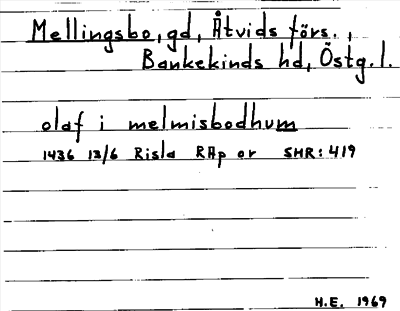 Mellingsbo, gd, Åtvids förs.,
Bankekinds hd, Östg.l.
olaf i melmisbodhum
1436 13/6 Risla RAp or SMR: 419
H.E. 1969